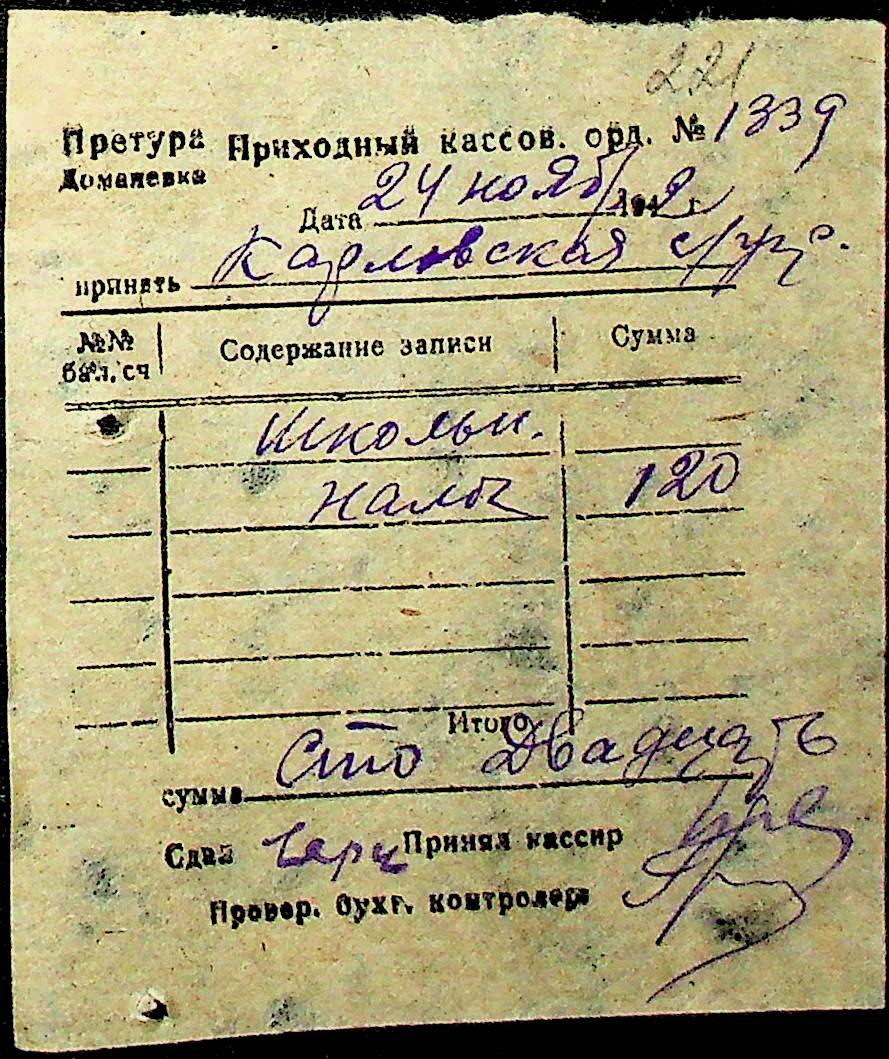 221
Претура Приходный кассов. орд. № 1339
Доманевка
Дата 24 нояб 194 г
принять Карловская
№№ бал. сч Содержание записи Сумма
Школьн.
налог 120
Итого
сумма Сто двадцать
Сдал Принял кассир
Провер. бухг. контролер